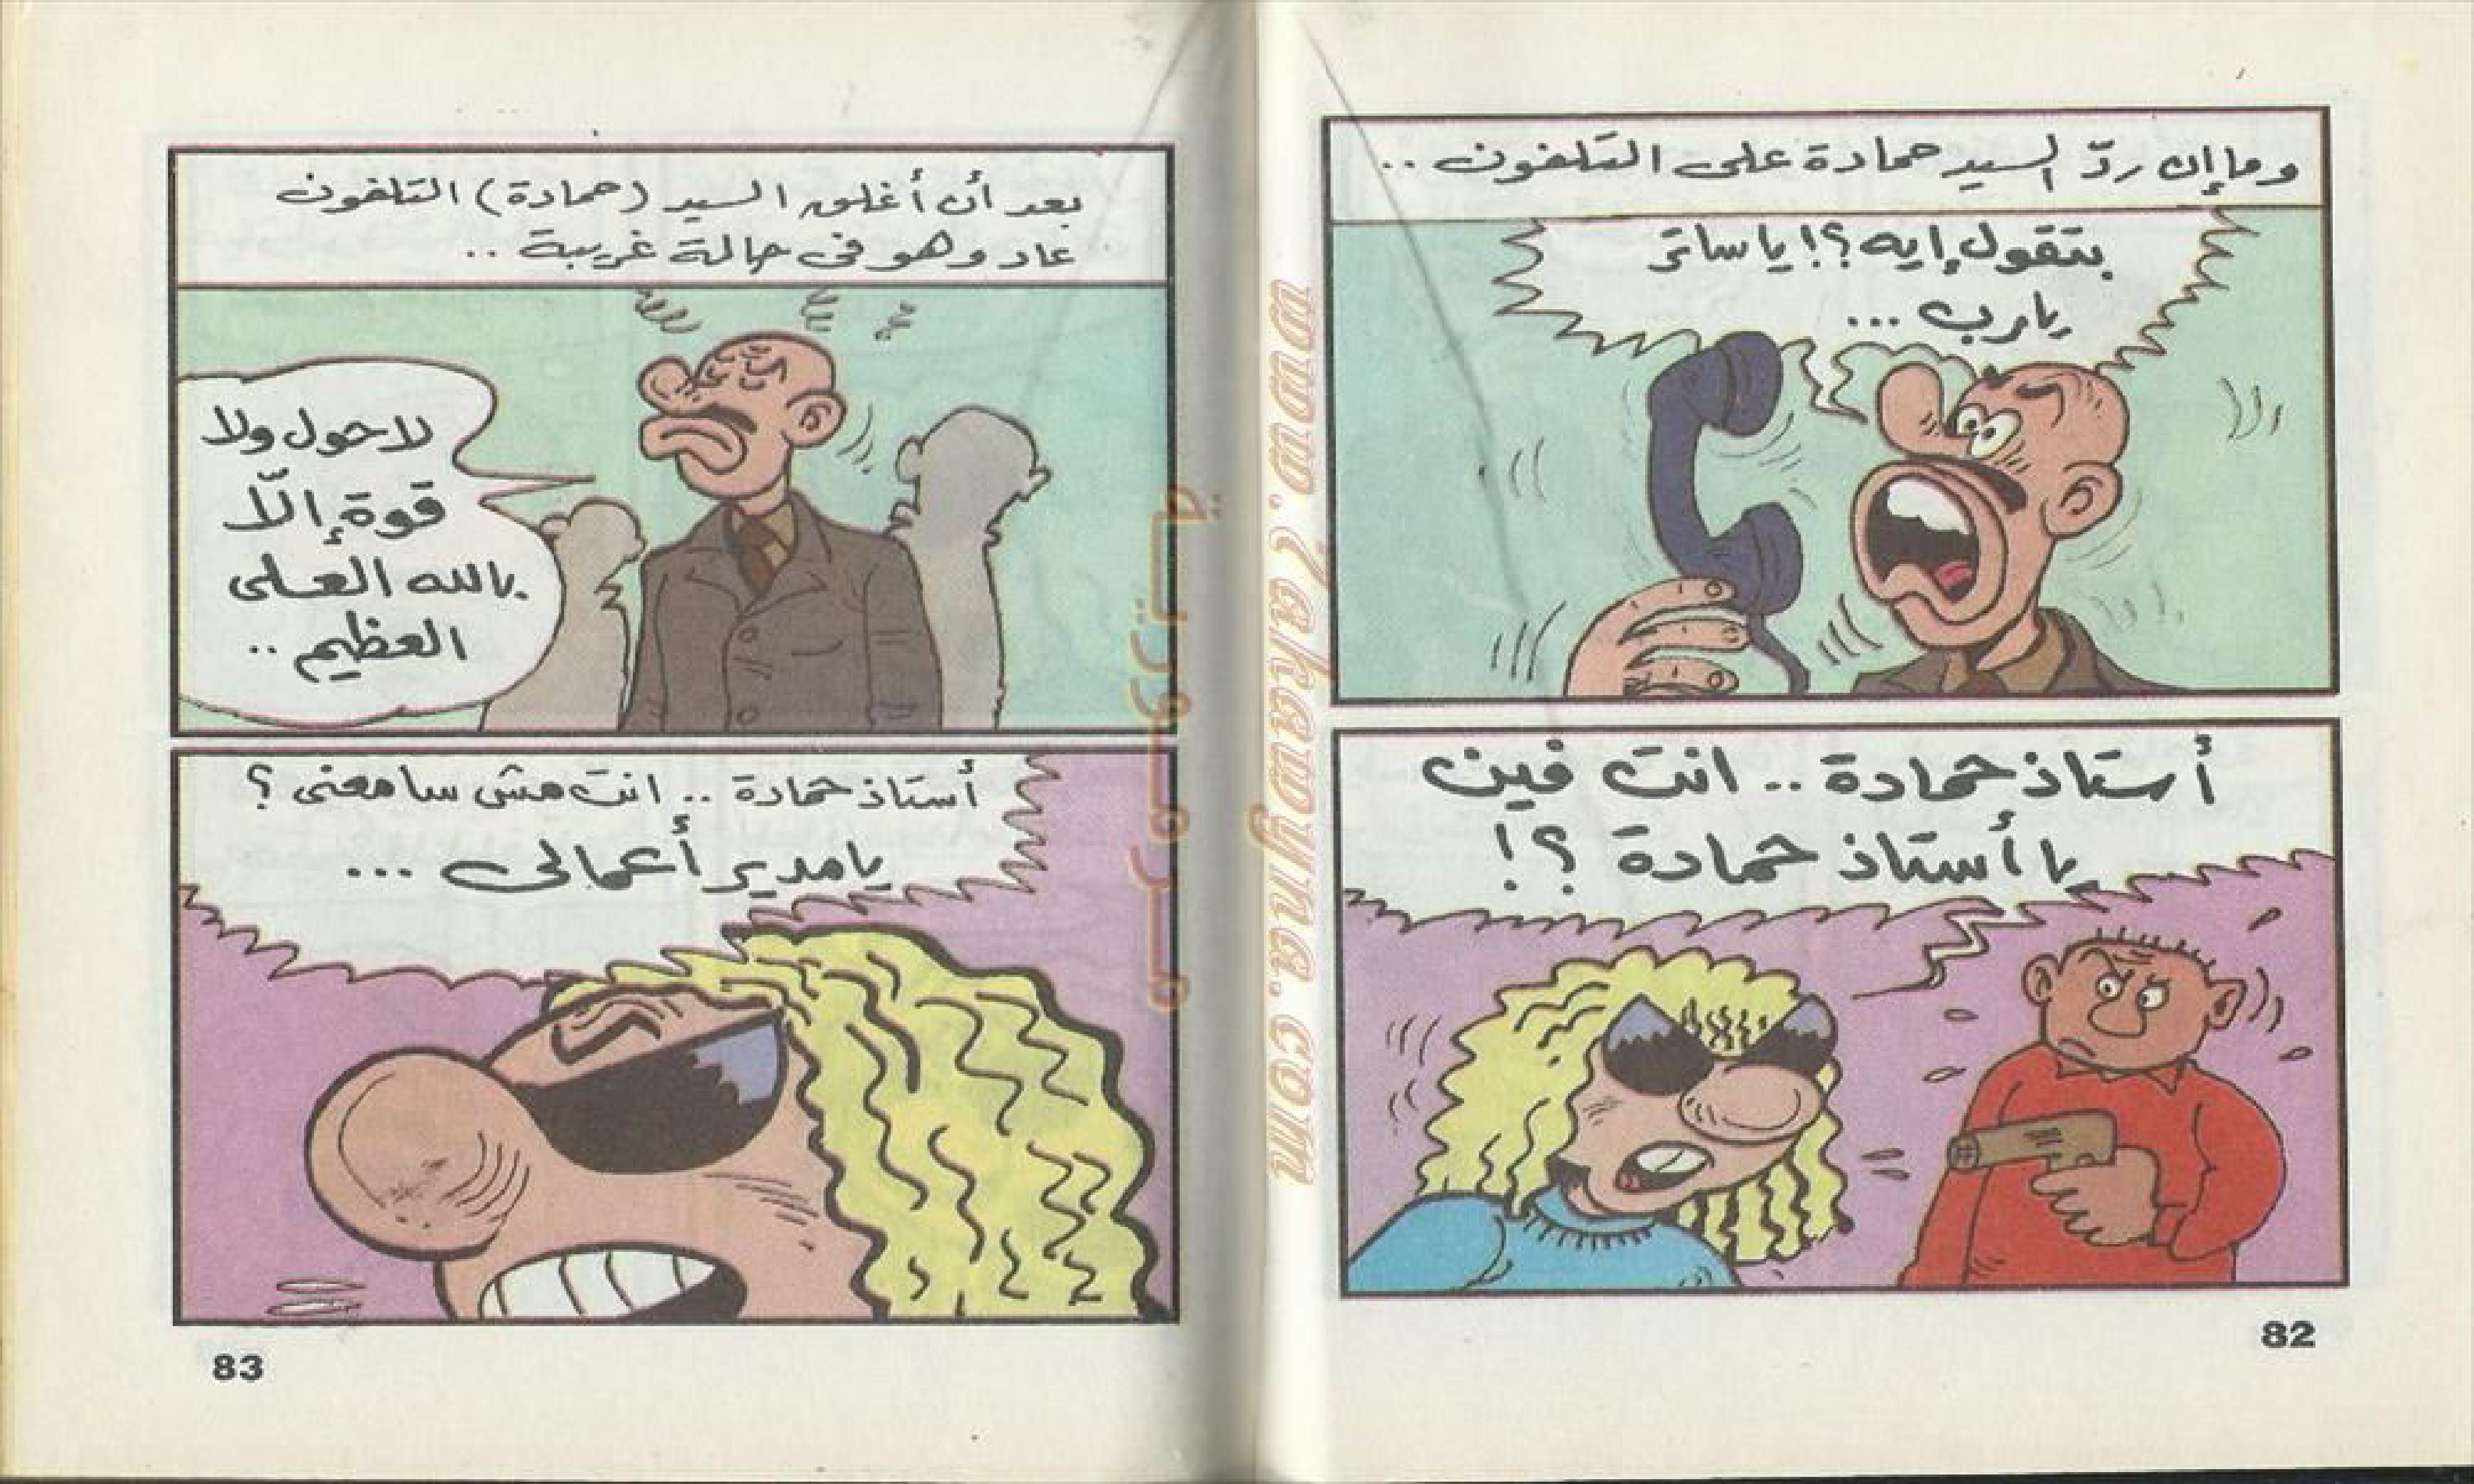 وما إن ردّ السيد حمادة على التلفون ..
بتقول إيه ؟! يا ساتر
يارب ...
أستاذ حمادة .. انت فين
يا أستاذ حمادة ؟!
82
بعد أن أغلق السيد (حمادة) التلفون
عاد وهو فى حالة غريبة ..
لا حول ولا
قوة إلّا
بالله العلى
العظيم ..
أستاذ حمادة .. انت مش سامعنى ؟
يا مدير أعمالى ...
83
www.Zakawyna.com